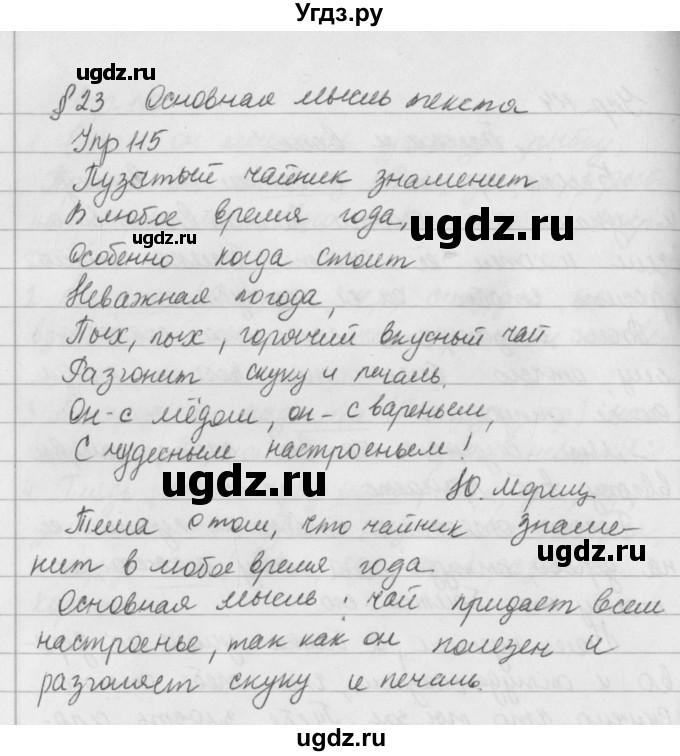 Угдз.ру
ugdz.ru
§ 23 Основная мысль текста
Упр 115
Пузатый чайник знаменит
В любое время года,
ugdz.ru
ugdz.ru
Особенно когда стоит
Неважная погода,
Пых, пых, горячий вкусный чай
Разгонит скуку и печаль.
Он - с мёдом, он - с вареньем,
С чудесным настроеньем!
ugdz.ru
Ю Мориц
Тема о том, что чайник знаме-
ugdz.ru
нит в любое время года.
Основная мысль: чай придает всем
настроенье, так как он полезен и
разгоняет скуку и печаль.
ugdz.ru